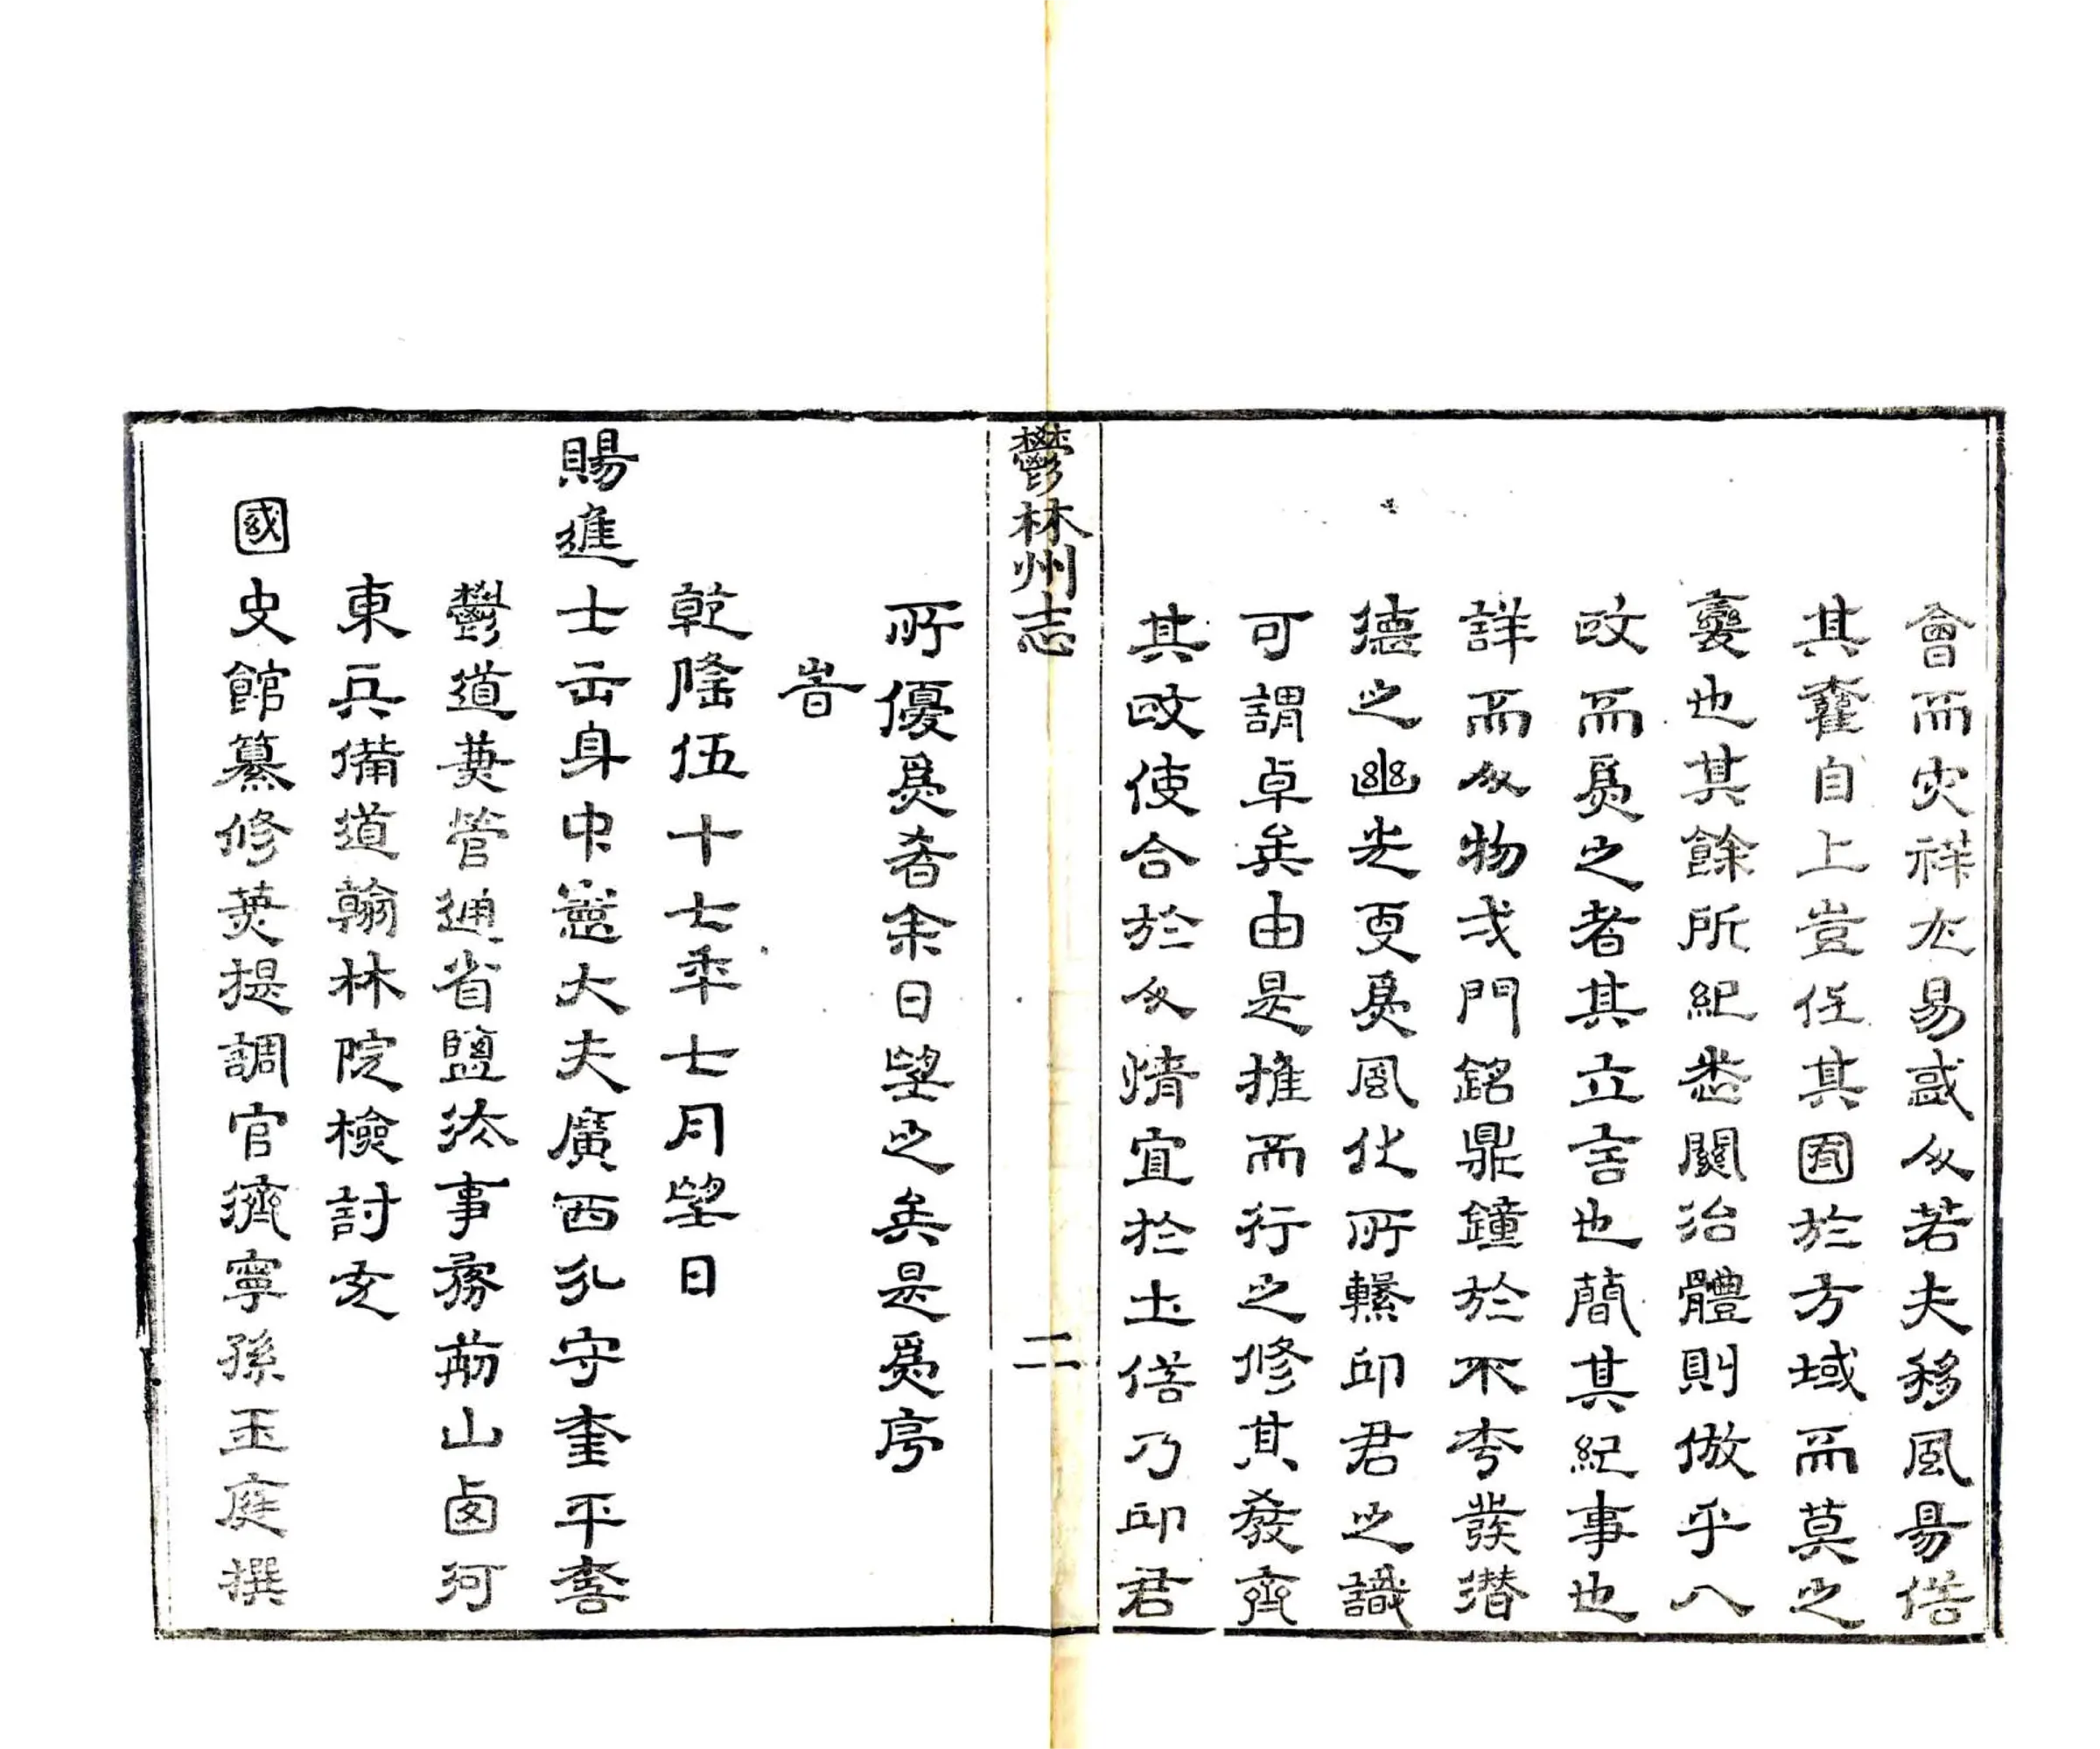 會而灾祥尤易惑人若夫移風易俗
其權自上豈任其囿於方域而莫之
變也其餘所紀悉關治體則倣乎八
政而爲之者其立言也簡其紀事也
詳而人物弌門銘鼎鐘於不朽發潛
德之幽光更爲風化所繫邱君之識
可謂卓矣由是推而行之修其教齊
其政使合於人情宜於土俗乃邱君
鬱林州志 二
所優爲者余日望之矣是爲序
旹
乾隆伍十七年七月望日
賜進士出身中憲大夫廣西分守桂平梧
鬱道兼管通省鹽法事務前山西河
東兵備道翰林院檢討充
國史館纂修兼提調官濟寧孫玉庭撰